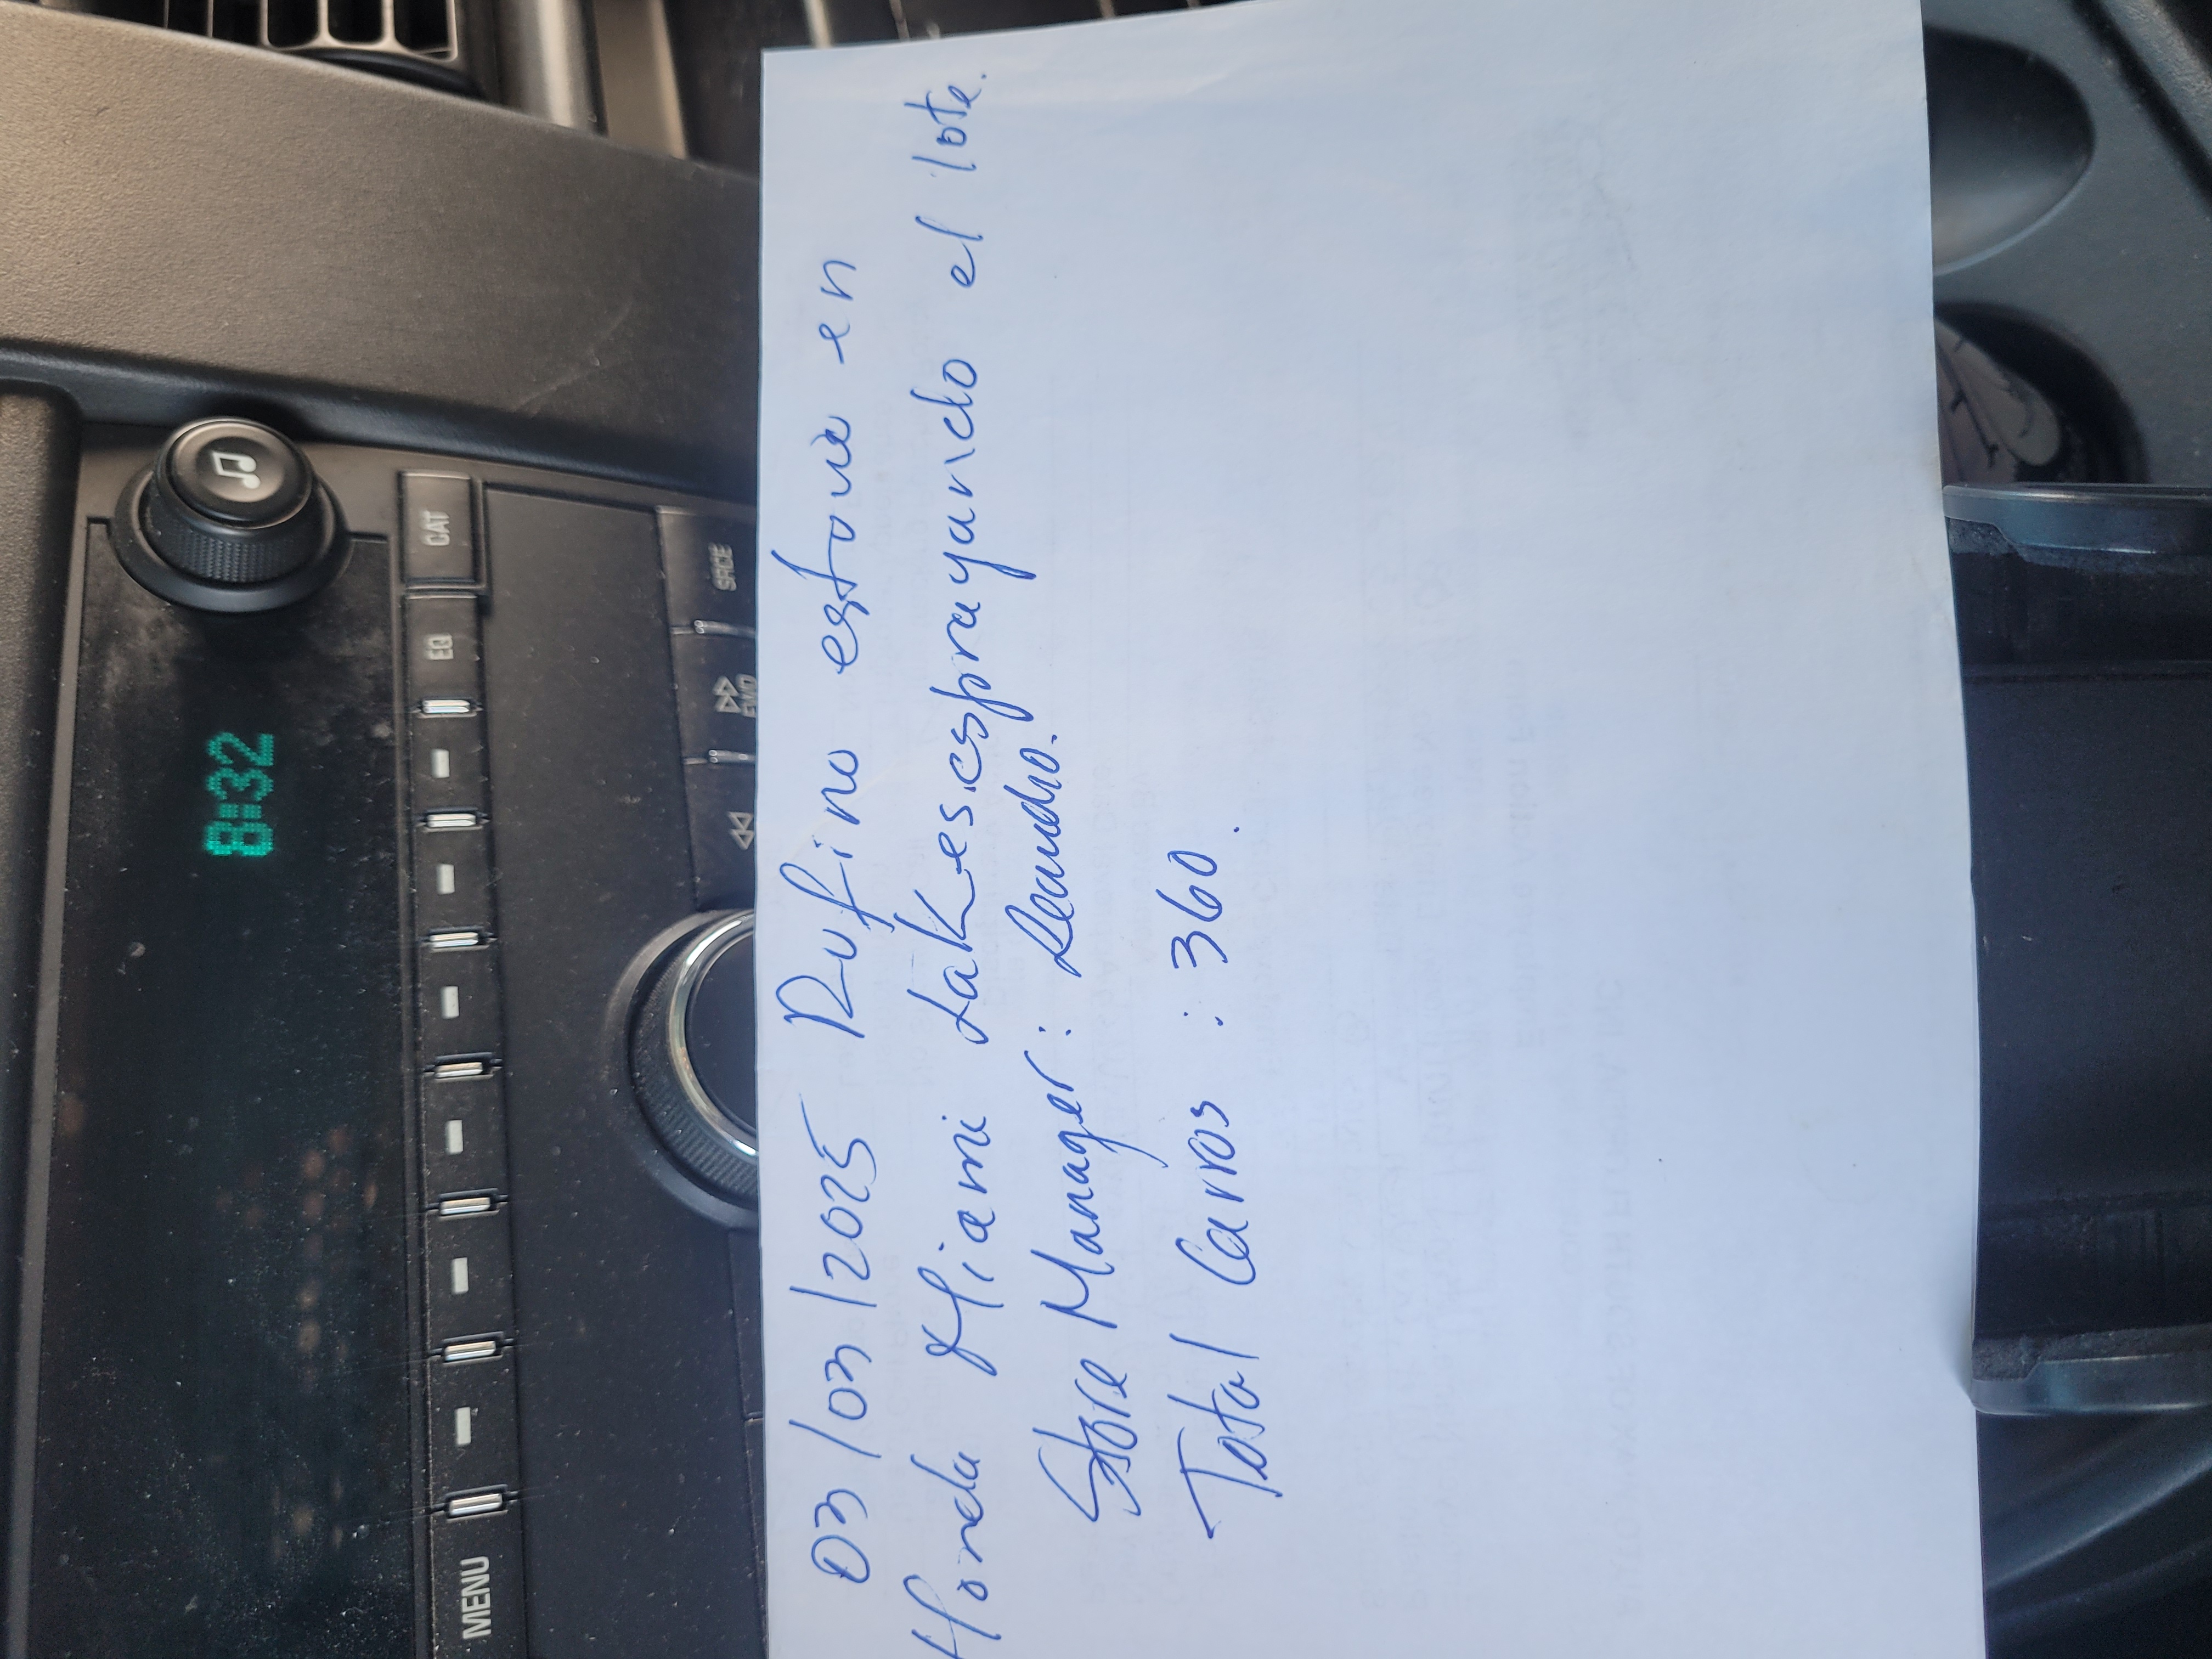 8:32
CAT
EQ
MENU
SRCE
END
03/03/2025 Rufino estovie en
Honda Miami Lakes.esprayando el lote.
Store Manager: Leandro.
Total Carros : 360.